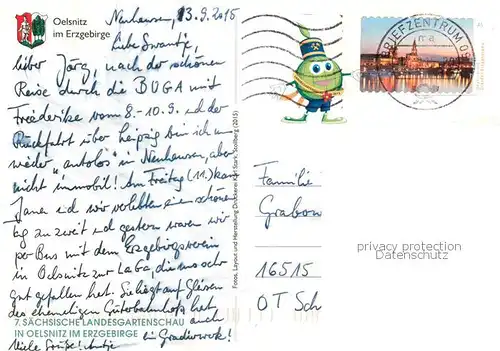 Oelsnitz
im Erzgebirge
Neuhausen, 13.9.2015
Liebe Swantje,
lieber Jörg, nach der schönen
Reise durch die BUGA mit
Friederike vom 8.-10.9. und der
Rückfahrt über Leipzig bin ich nun
wieder „autolos“ in Neuhausen, aber
nicht immobil! Am Freitag (11.) kam
Jana und wir verlebten einen schönen
Tag zu zweit und gestern waren wir
per Bus mit dem Erzgebirgsverein
in Oelsnitz zur LaGa, die uns sehr
gut gefallen hat. Sie liegt auf Gleisen
des ehemaligen Güterbahnhofs, hat
auch
ein Gradierwerk!
Viele Grüße! Antje
7. SÄCHSISCHE LANDESGARTENSCHAU
IN OELSNITZ IM ERZGEBIRGE
Fotos, Layout und Herstellung Druckerei Stark, Stollberg (2015)
BRIEFZENTRUM 0
Familie
Grabow
privacy protection
Datenschutz
16515
OT Sch